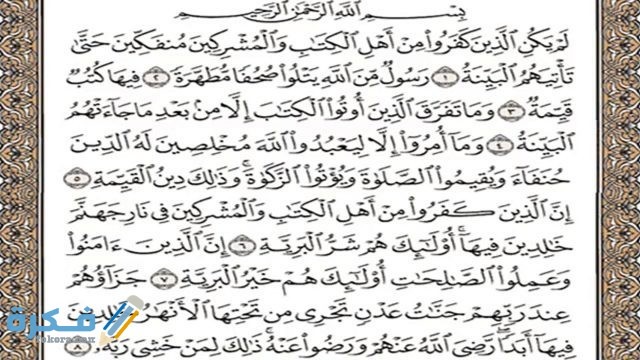 بِسْمِ ٱللَّهِ ٱلرَّحْمَٰنِ ٱلرَّحِيمِ
لَمْ يَكُنِ ٱلَّذِينَ كَفَرُوا۟ مِنْ أَهْلِ ٱلْكِتَٰبِ وَٱلْمُشْرِكِينَ مُنفَكِّينَ حَتَّىٰ
تَأْتِيَهُمُ ٱلْبَيِّنَةُ ١ رَسُولٌ مِّنَ ٱللَّهِ يَتْلُوا۟ صُحُفًا مُّطَهَّرَةً ٢ فِيهَا كُتُبٌ
قَيِّمَةٌ ٣ وَمَا تَفَرَّقَ ٱلَّذِينَ أُوتُوا۟ ٱلْكِتَٰبَ إِلَّا مِنۢ بَعْدِ مَا جَآءَتْهُمُ
ٱلْبَيِّنَةُ ٤ وَمَآ أُمِرُوٓا۟ إِلَّا لِيَعْبُدُوا۟ ٱللَّهَ مُخْلِصِينَ لَهُ ٱلدِّينَ
حُنَفَآءَ وَيُقِيمُوا۟ ٱلصَّلَوٰةَ وَيُؤْتُوا۟ ٱلزَّكَوٰةَ ۚ وَذَٰلِكَ دِينُ ٱلْقَيِّمَةِ ٥
إِنَّ ٱلَّذِينَ كَفَرُوا۟ مِنْ أَهْلِ ٱلْكِتَٰبِ وَٱلْمُشْرِكِينَ فِى نَارِ جَهَنَّمَ
خَٰلِدِينَ فِيهَآ ۚ أُو۟لَٰٓئِكَ هُمْ شَرُّ ٱلْبَرِيَّةِ ٦ إِنَّ ٱلَّذِينَ ءَامَنُوا۟
وَعَمِلُوا۟ ٱلصَّٰلِحَٰتِ أُو۟لَٰٓئِكَ هُمْ خَيْرُ ٱلْبَرِيَّةِ ٧ جَزَآؤُهُمْ
عِندَ رَبِّهِمْ جَنَّٰتُ عَدْنٍ تَجْرِى مِن تَحْتِهَا ٱلْأَنْهَٰرُ خَٰلِدِينَ
فِيهَآ أَبَدًا ۖ رَّضِىَ ٱللَّهُ عَنْهُمْ وَرَضُوا۟ عَنْهُ ۚ ذَٰلِكَ لِمَنْ خَشِىَ رَبَّهُۥ ٨
فكرة